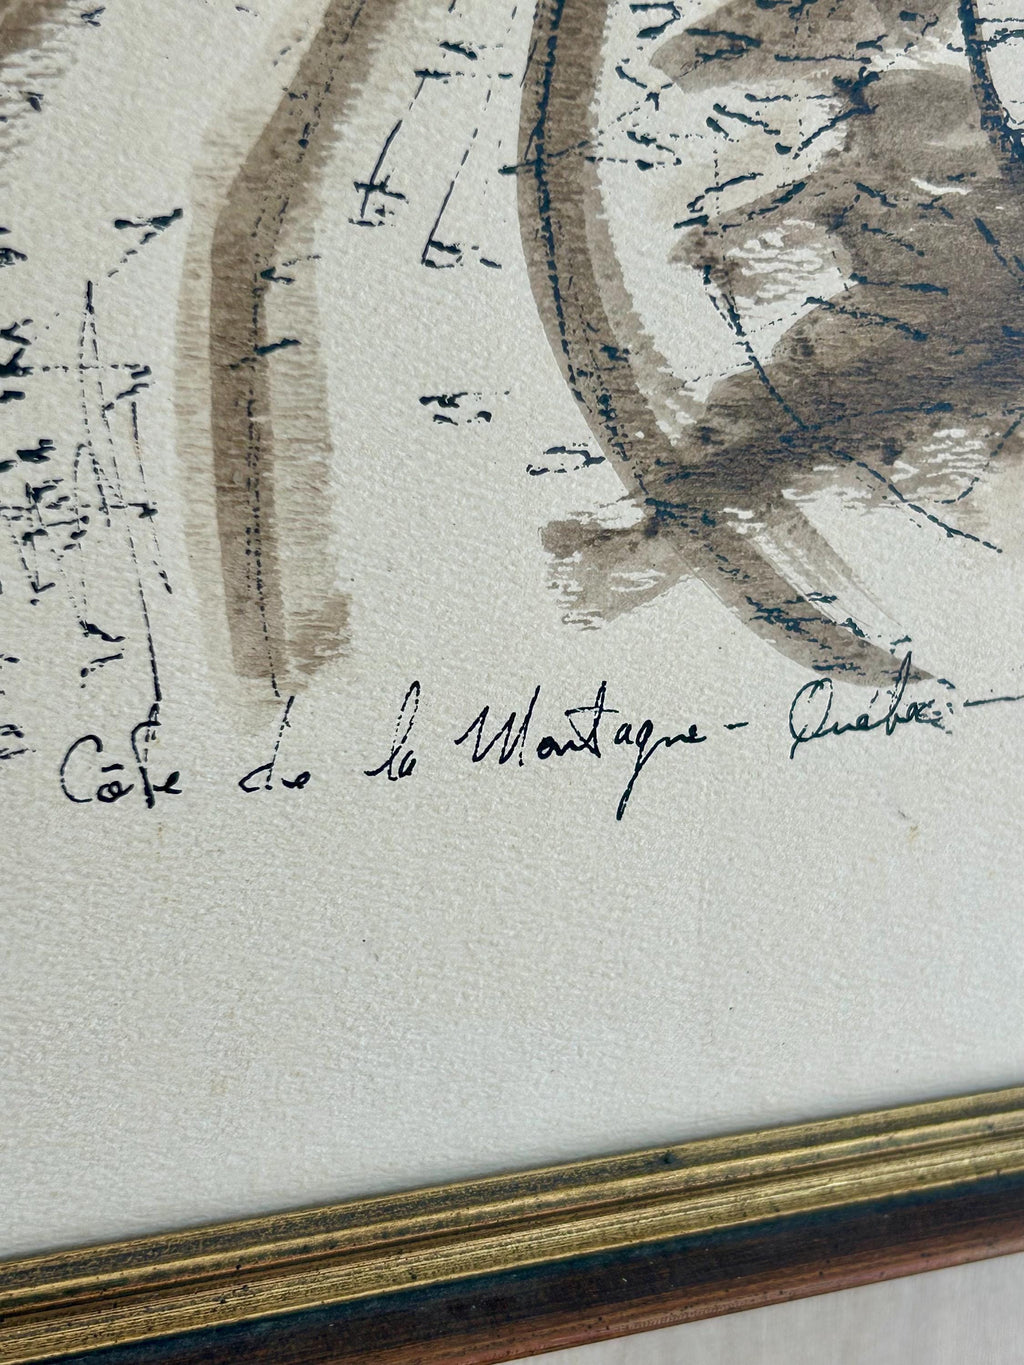 Côte de la Montagne - Québec -